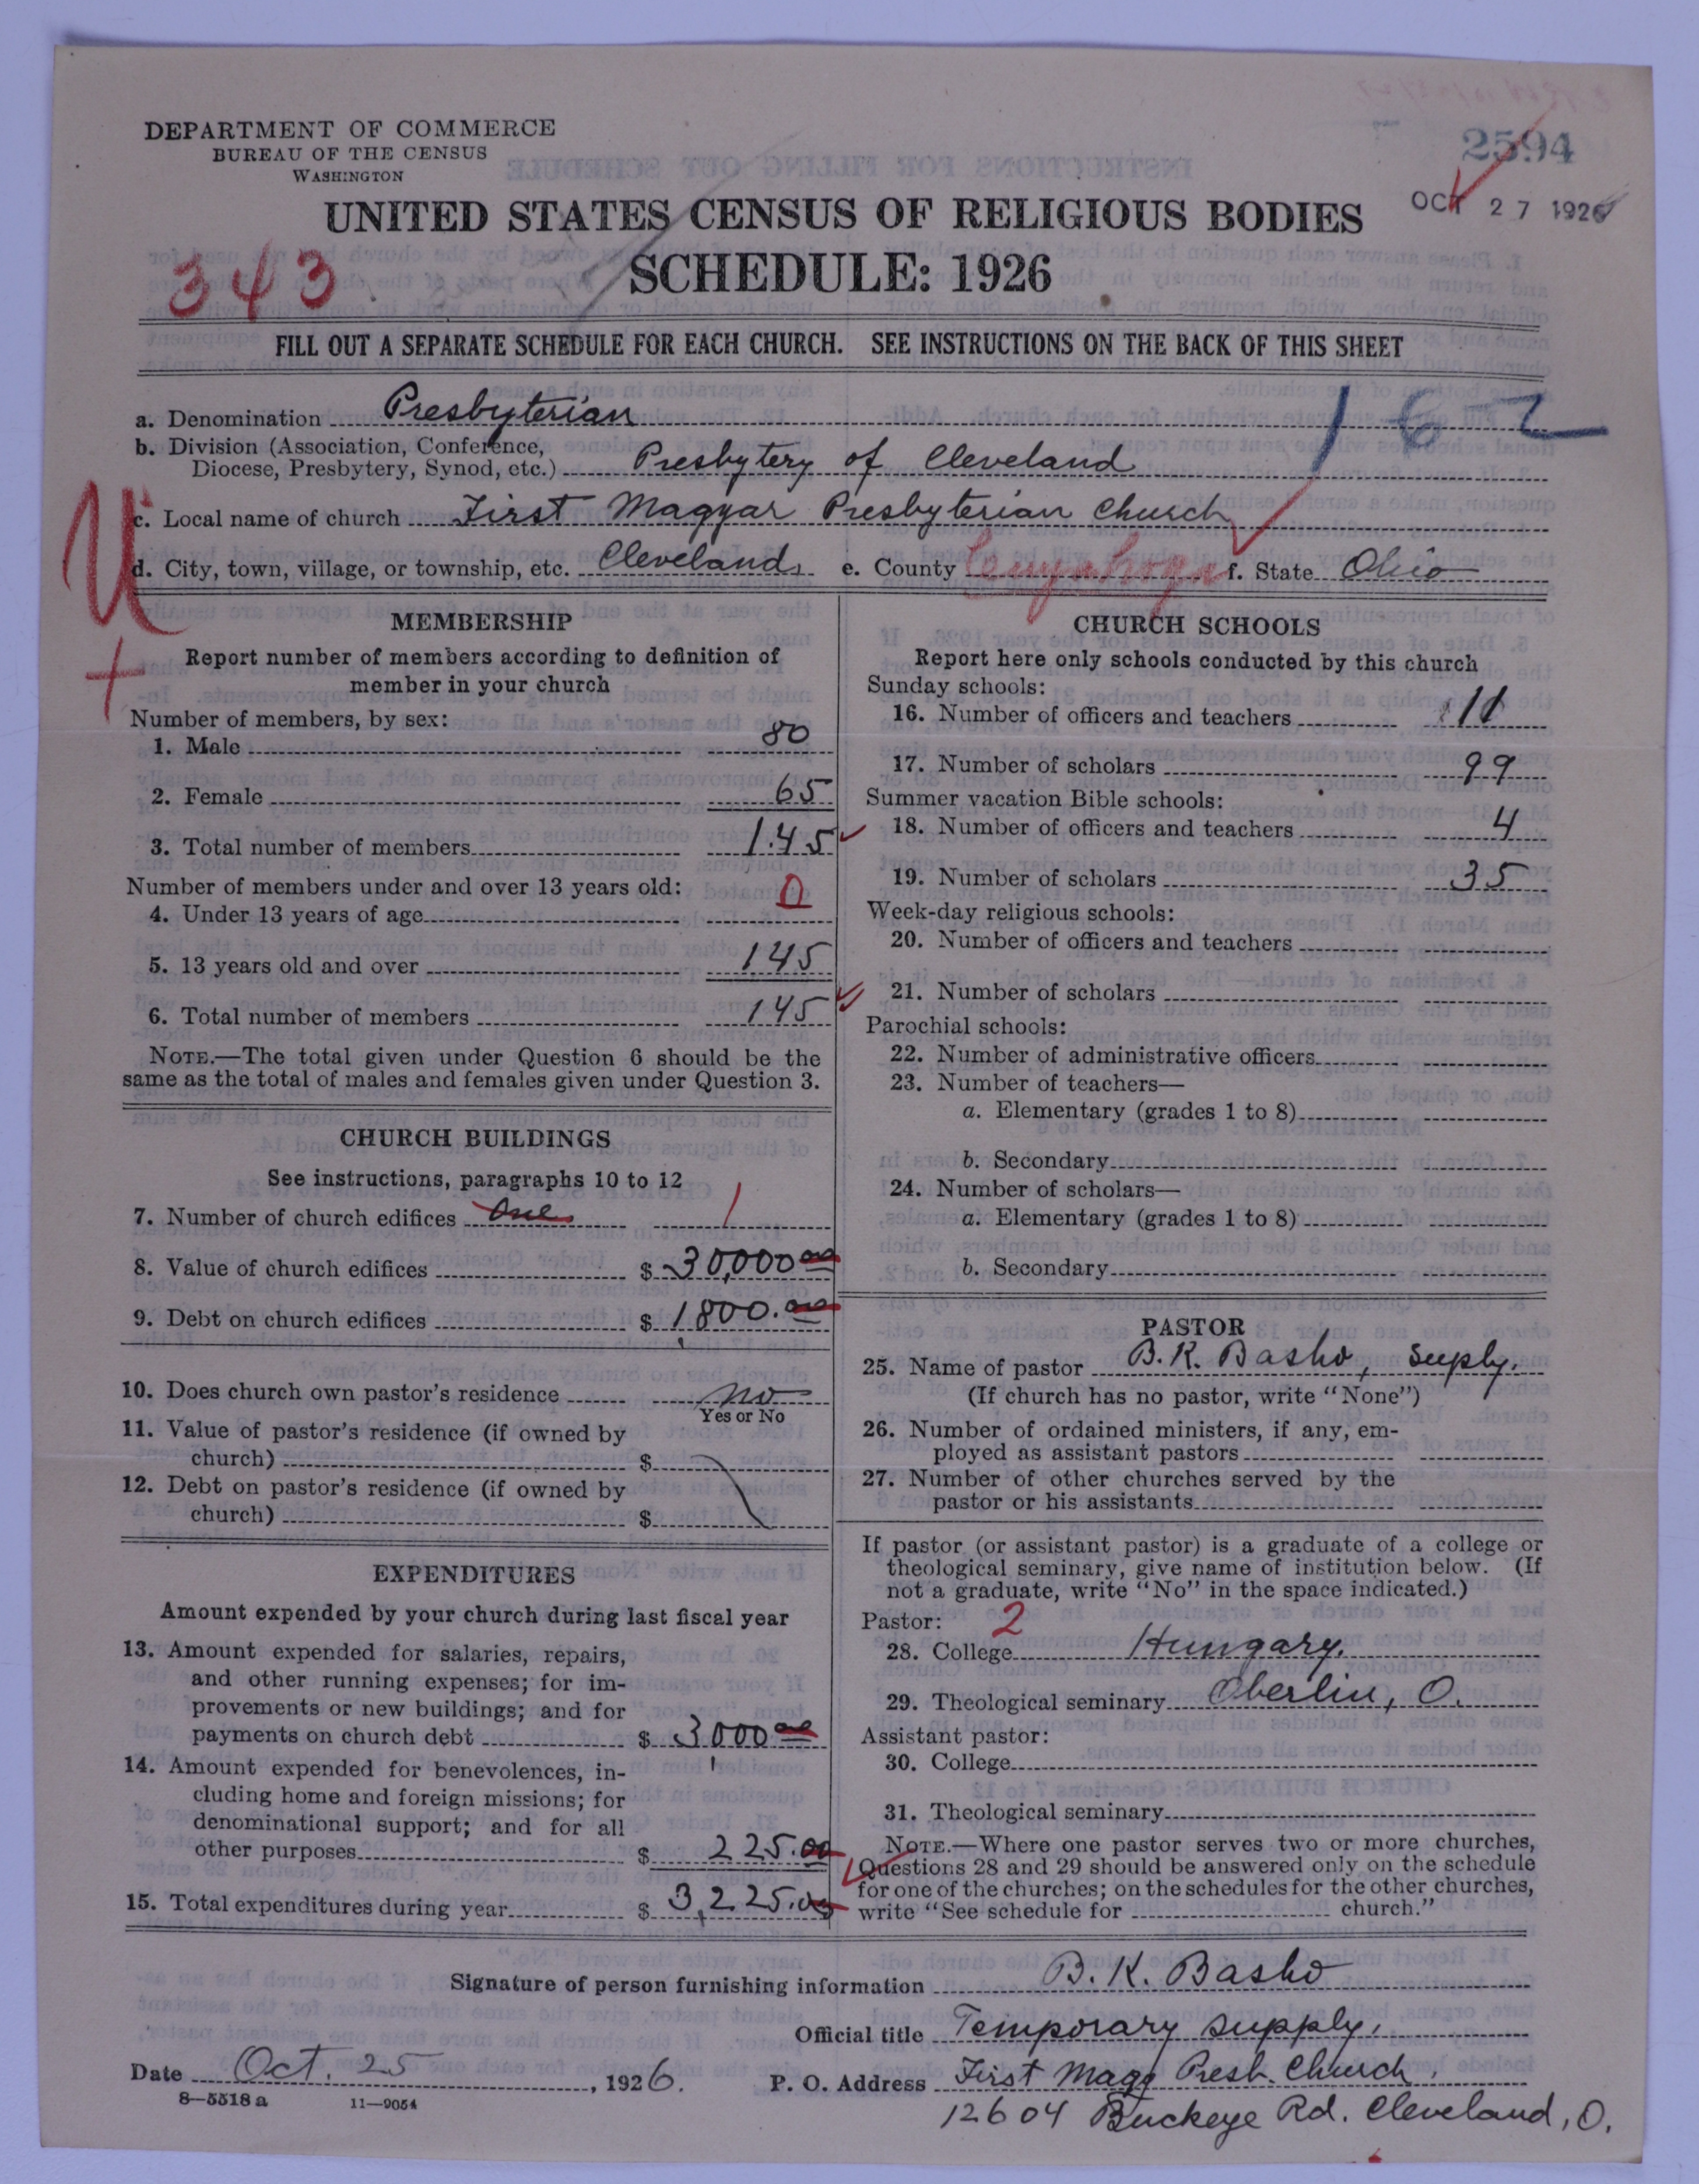 DEPARTMENT OF COMMERCE
BUREAU OF THE CENSUS
WASHINGTON
2594
OCT 27 1926
UNITED STATES CENSUS OF RELIGIOUS BODIES
SCHEDULE: 1926
343
FILL OUT A SEPARATE SCHEDULE FOR EACH CHURCH. SEE INSTRUCTIONS ON THE BACK OF THIS SHEET
a. Denomination Presbyterian
162
b. Division (Association, Conference,
Diocese, Presbytery, Synod, etc.) Presbytery of Cleveland
U
c. Local name of church First Magyar Presbyterian Church
d. City, town, village, or township, etc. Cleveland, e. County Cuyahoga f. State Ohio
MEMBERSHIP
Report number of members according to definition of
member in your church
Number of members, by sex:
1. Male 80
2. Female 65
3. Total number of members 145
Number of members under and over 13 years old:
4. Under 13 years of age 0
5. 13 years old and over 145
6. Total number of members 145
NOTE.—The total given under Question 6 should be the
same as the total of males and females given under Question 3.
CHURCH BUILDINGS
See instructions, paragraphs 10 to 12
7. Number of church edifices One 1
8. Value of church edifices $ 30,000 00
9. Debt on church edifices $ 1800.00
10. Does church own pastor's residence no
Yes or No
11. Value of pastor's residence (if owned by
church) $
12. Debt on pastor's residence (if owned by
church) $
EXPENDITURES
Amount expended by your church during last fiscal year
13. Amount expended for salaries, repairs,
and other running expenses; for im-
provements or new buildings; and for
payments on church debt $ 3000 00
14. Amount expended for benevolences, in-
cluding home and foreign missions; for
denominational support; and for all
other purposes $ 225.00
15. Total expenditures during year $ 3,225.00
CHURCH SCHOOLS
Report here only schools conducted by this church
Sunday schools:
16. Number of officers and teachers 11
17. Number of scholars 99
Summer vacation Bible schools:
18. Number of officers and teachers 4
19. Number of scholars 35
Week-day religious schools:
20. Number of officers and teachers
21. Number of scholars
Parochial schools:
22. Number of administrative officers
23. Number of teachers—
a. Elementary (grades 1 to 8)
b. Secondary
24. Number of scholars—
a. Elementary (grades 1 to 8)
b. Secondary
PASTOR
25. Name of pastor B. K. Basho, Suply.
(If church has no pastor, write "None")
26. Number of ordained ministers, if any, em-
ployed as assistant pastors
27. Number of other churches served by the
pastor or his assistants
If pastor (or assistant pastor) is a graduate of a college or
theological seminary, give name of institution below. (If
not a graduate, write "No" in the space indicated.)
Pastor: 2
28. College Hungary.
29. Theological seminary Oberlin, O.
Assistant pastor:
30. College
31. Theological seminary
NOTE.—Where one pastor serves two or more churches,
Questions 28 and 29 should be answered only on the schedule
for one of the churches; on the schedules for the other churches,
write "See schedule for church."
Signature of person furnishing information B. K. Basho
Official title Temporary supply.
Date Oct. 25, 1926. P. O. Address First Magy Presb. Church,
8—5518 a 11—9054
12604 Buckeye Rd. Cleveland, O.